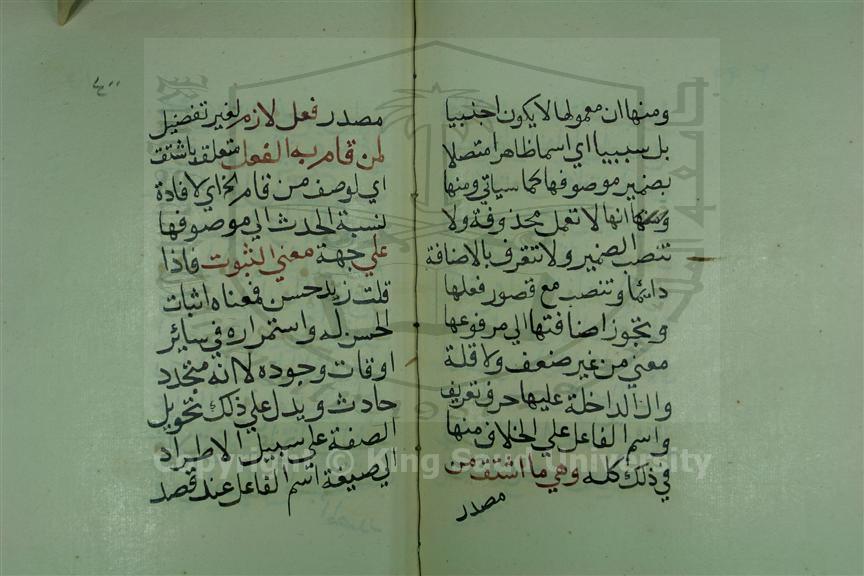 ومنها ان معمولها لا يكون اجنبيا
بل سببيا اي اسما ظاهرا متصلا
بضمير موصوفها كما سياتي ومنها
ومنها انها لا تعمل محذوفة ولا
تنصب الضمير ولا تتعرف بالاضافة
دائما وتنصب مع قصور فعلها
ويجوز اضافتها الي مرفوعها
معني من غير ضعف ولا قلة
وال الداخلة عليها حرف تعريف
واسم الفاعل علي الخلاف منها
في ذلك كله وهي ما اشتق من
مصدر
مصدر فعل لازم لغير تفضيل
لمن قام به الفعل متعلق باشتق
اي لوصف من قام الخ اي لافادة
نسبة الحدث الي موصوفها
علي جهة معني الثبوت فاذا
قلت زيد حسن فمعناه اثبات
الحسن له واستمراره في ساير
اوقات وجوده لا انه متجدد
حادث ويدل علي ذلك تحويل
الصفة علي سبيل الاطراد
الي صيغة اسم الفاعل عند قصد
Copyright © King Saud University